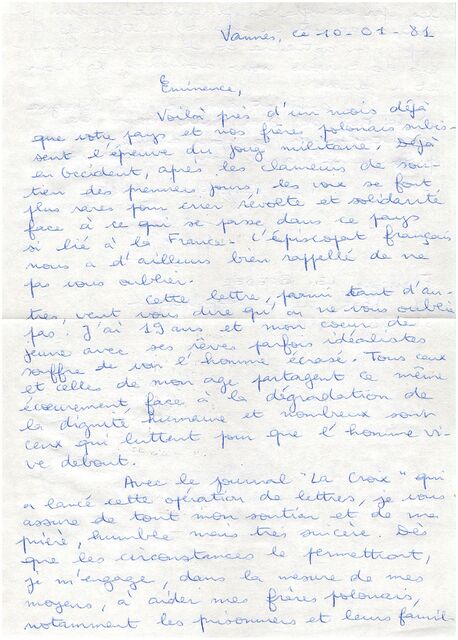 Vannes, ce 10-01-81
Eminence,
Voilà près d'un mois déjà
que votre pays et nos frères polonais subis-
sent l'épreuve du joug militaire. Déjà
en occident, après les clameurs de sou-
tien des premiers jours, les voix se font
plus rares pour crier révolte et solidarité
face à ce qui se passe dans ce pays
si lié à la France. L'Épiscopat français
nous a d'ailleurs bien rappellé de ne
pas vous oublier.
Cette lettre, parmi tant d'au-
tres, veut vous dire qu'on ne vous oublie
pas. J'ai 19 ans et mon coeur de
jeune avec ses rêves parfois idéalistes
souffre de voir l'homme écrasé. Tous ceux
et celles de mon age partagent ce même
écoeurement face à la dégradation de
la dignité humaine et nombreux sont
ceux qui luttent pour que l'homme vi-
ve debout.
Avec le journal "La Croix" qui
a lancé cette opération de lettres, je vous
assure de tout mon soutien et de ma
prière, humble mais très sincère. Dès
que les circonstances le permettront,
je m'engage, dans la mesure de mes
moyens, à aider mes frères polonais,
notamment les prisonniers et leurs famil-